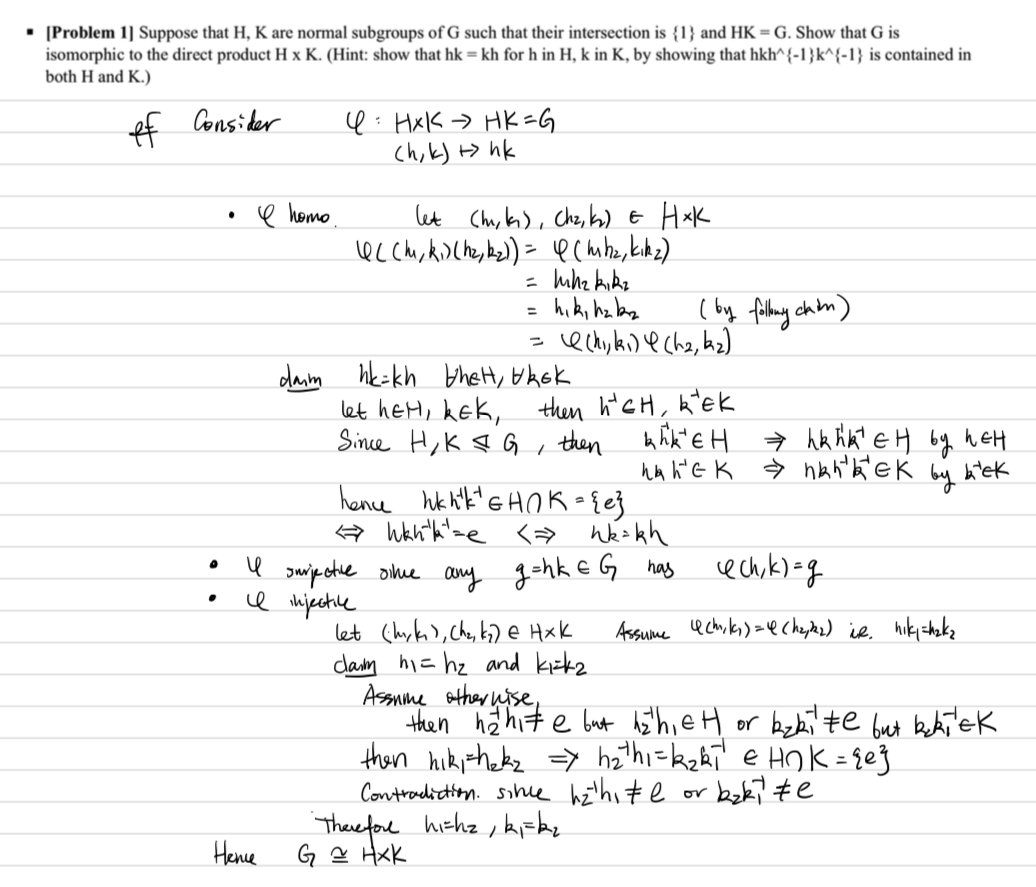 ▪ [Problem 1] Suppose that H, K are normal subgroups of G such that their intersection is {1} and HK = G. Show that G is
isomorphic to the direct product H x K. (Hint: show that hk = kh for h in H, k in K, by showing that hkh^{-1}k^{-1} is contained in
both H and K.)
pf Consider φ : H×K → HK=G
(h,k) ↦ hk
• φ homo. let (h₁,k₁), (h₂,k₂) ∈ H×K
φ((h₁,k₁)(h₂,k₂)) = φ(h₁h₂,k₁k₂)
= h₁h₂k₁k₂
= h₁k₁h₂k₂ (by following claim)
= φ(h₁,k₁)φ(h₂,k₂)
claim hk=kh ∀h∈H, ∀k∈K
let h∈H, k∈K, then h⁻¹∈H, k⁻¹∈K
Since H,K ⊴ G, then kh⁻¹k⁻¹∈H ⇒ hkh⁻¹k⁻¹∈H by h∈H
hkh⁻¹∈K ⇒ hkh⁻¹k⁻¹∈K by k⁻¹∈K
hence hkh⁻¹k⁻¹∈H∩K={e}
⇔ hkh⁻¹k⁻¹=e ⇔ hk=kh
• φ surjective since any g=hk∈G has φ(h,k)=g
• φ injective
let (h₁,k₁),(h₂,k₂)∈H×K Assume φ(h₁,k₁)=φ(h₂,k₂) i.e. h₁k₁=h₂k₂
claim h₁=h₂ and k₁=k₂
Assume otherwise,
then h₂⁻¹h₁≠e but h₂⁻¹h₁∈H or k₂k₁⁻¹≠e but k₂k₁⁻¹∈K
then h₁k₁=h₂k₂ ⇒ h₂⁻¹h₁=k₂k₁⁻¹ ∈ H∩K={e}
Contradiction. since h₂⁻¹h₁≠e or k₂k₁⁻¹≠e
Therefore h₁=h₂, k₁=k₂
Hence G ≅ H×K